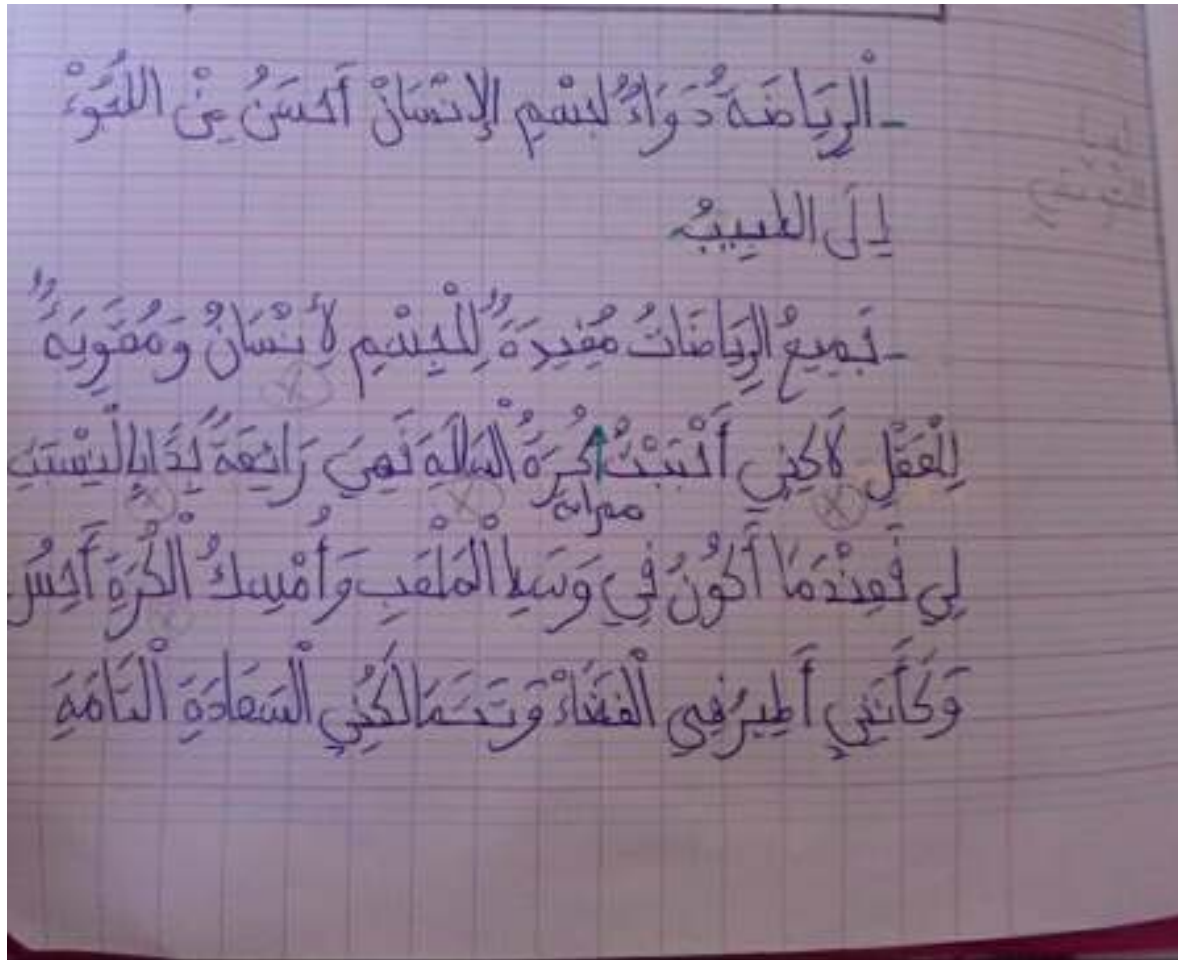 - ألْرِيَاضَةُ دَوَاءٌ لجِسْمِ الإِنْسَانْ أَحْسَنُ مِنْ اللُجُوْءْ
إِلَى الطبِيبُ
- جَمِيعُ الرِيَاضَاتُ مُفِيدَةٌ لِلْجِسْمِ لأِنْسَانُ وَمُقَوِيَةٌ
لِلْعَقْلِ لَاكِنِي أَحْبَبْتُ كُرَةُ الْسَلَةِ فَهِيَ رَائِعَةٌ جِدَا بِالْنِسْبَتِ
ممرات
لِي فَعِنْدَمَا أَكُوْنُ فِي وَسَطِ الْمَلْعَبِ وَأُمْسِكُ الْكُرَةِ أَحِسُ
وَكَأَنَنِي أَطِيرُ فِي الْفَضَاءْ وَتَتَمَالَكُنِي الْسَعَادَةِ الْتَامَةِ